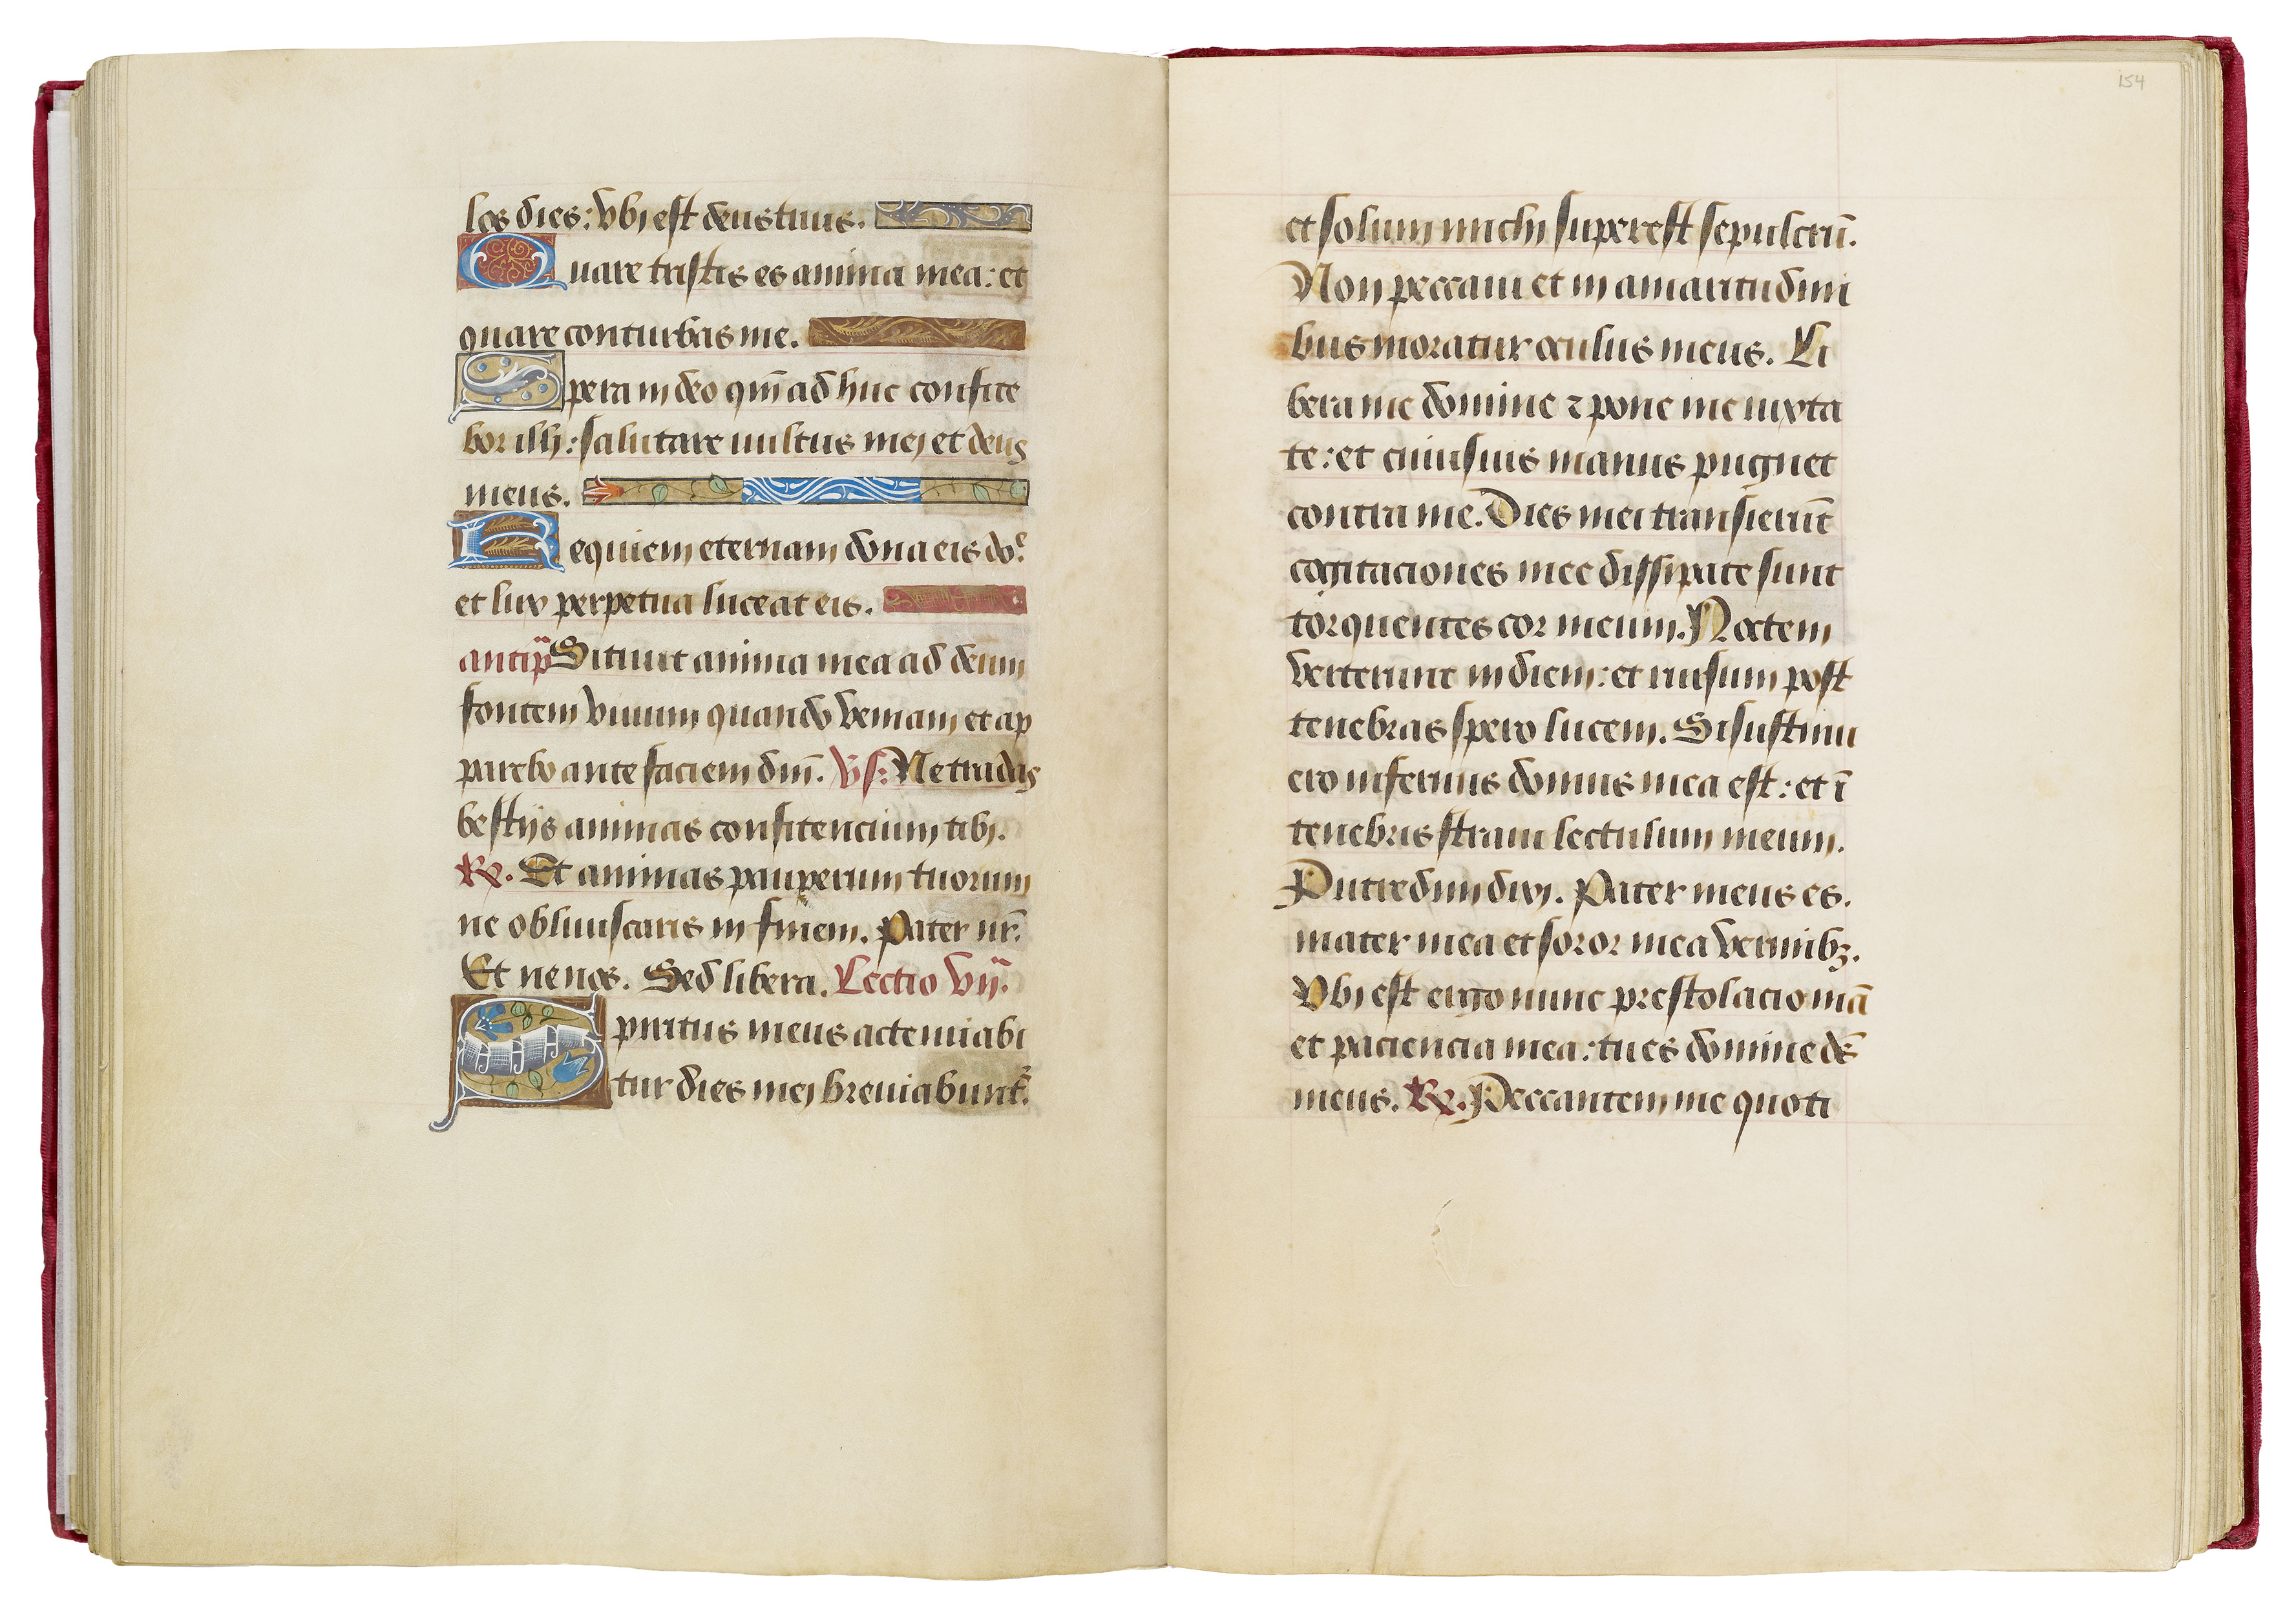 los dies: vbi est deus tuus.
Quare tristis es anima mea: et
quare conturbas me.
Spera in deo qm̄ ad huc confite
bor illi: salutare uultus mei et deus
meus.
Requiem eternam dona eis do.ͤ
et lux perpetua luceat eis.
antip̄ Sitiuit anima mea ad deum
fontem viuum quando veniam et ap
parebo ante faciem dm̄. v̄s: Ne tradas
bestijs animas confitencium tibi.
℟. Et animas pauperum tuorum
ne obliuiscaris in finem. Pater nr̄.
Et ne nos. Sed libera. Lectio vij.
Spiritus meus attenuiabi
tur dies mei breuiabunt᷑.
154
et solum michi superest sepulcrū.
Non peccaui et in amaritudini
bus moratur oculus meus. Li
bera me domine ⁊ pone me iuxta
te: et cuiusuis manus pugnet
contra me. Dies mei transierūt
cogitaciones mee dissipate sunt
torquentes cor meum. Noctem
verterunt in diem: et rursum post
tenebras spero lucem. Si sustinu
ero infernus domus mea est: et ī
tenebris straui lectulum meum.
Putredini dixi. Pater meus es.
mater mea et soror mea vermibꝫ.
Vbi est ergo nunc prestolacio mā
et paciencia mea: tu es domine dē
meus. ℟. Peccantem me quoti